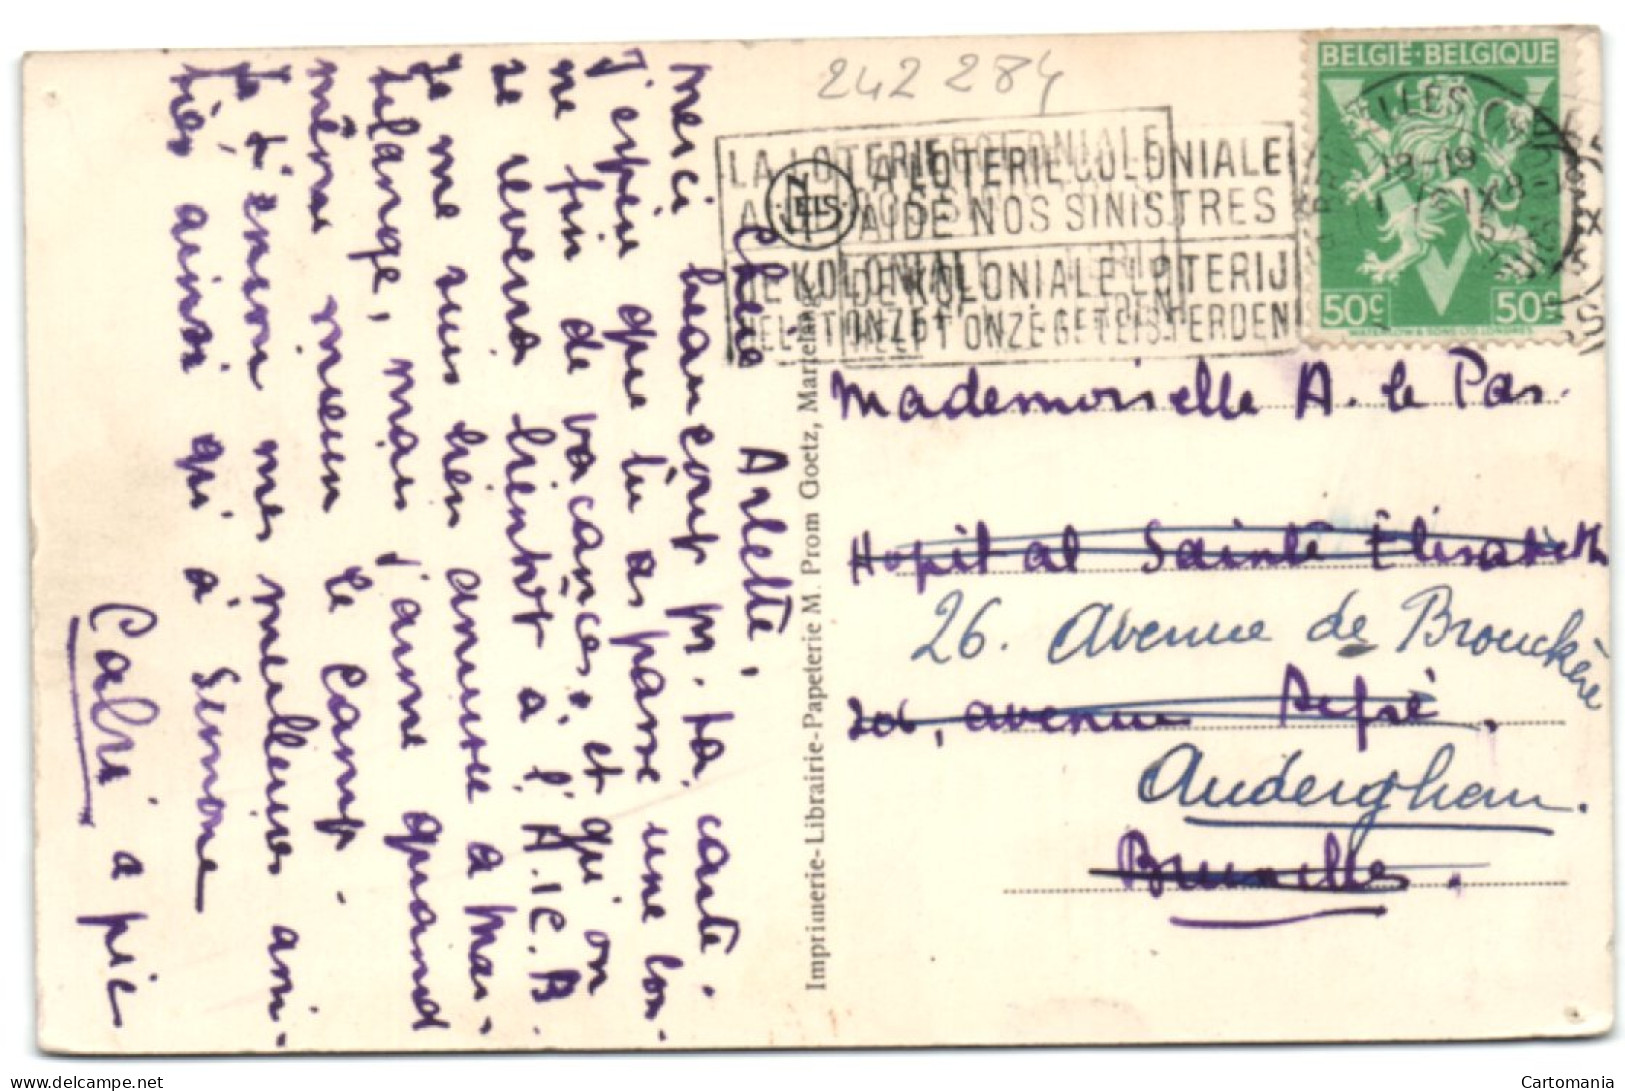 242 284
BELGIË-BELGIQUE
50c 50c
LA LOTERIE COLONIALE
AIDE NOS SINISTRES
DE KOLONIALE LOTERIJ
HELPT ONZE GETEISTERDEN
NELS
Chère Arlette,
Merci beaucoup pr. ta carte.
J'espère que tu as passé une bon-
ne fin de vacances, et qu'on
se reverra bientôt à l'A.I.C.B.
Je me suis bien amusée à Mar-
telange, mais j'aime quand
même mieux le camp.
Je t'envoie mes meilleures ami-
tiés ainsi qu'à Simone
Calu à pic
Imprimerie-Librairie-Papeterie M. Prom Goetz, Martelange
Mademoiselle A. le Pas.
Hopital Sainte Elisabeth
26. Avenue de Brouckère
206, avenue Defré.
Auderghem.
Bruxelles.
delcampe.net
Cartomania